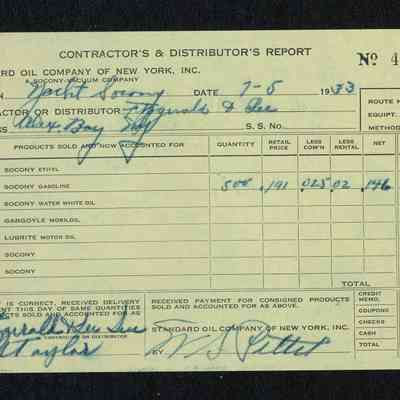 CONTRACTOR'S & DISTRIBUTOR'S REPORT
Nº 4
ARD OIL COMPANY OF NEW YORK, INC.
A SOCONY-VACUUM COMPANY
N Yacht Socony DATE 7-5 1933
ROUTE N
ACTOR OR DISTRIBUTOR Fitzgerald & Lee
EQUIPT.
SS Alex Bay NY S. S. No.
METHOD
PRODUCTS SOLD AND NOW ACCOUNTED FOR QUANTITY RETAIL PRICE LESS COM'N LESS RENTAL NET
SOCONY ETHYL
SOCONY GASOLINE 500 .191 .025 .02 .146
SOCONY WATER WHITE OIL
GARGOYLE MOBILOIL
LUBRITE MOTOR OIL
SOCONY
SOCONY
TOTAL
T IS CORRECT. RECEIVED DELIVERY
ENT THIS DAY OF SAME QUANTITIES
SOLD AND ACCOUNTED FOR AS
RECEIVED PAYMENT FOR CONSIGNED PRODUCTS
SOLD AND ACCOUNTED FOR AS ABOVE.
STANDARD OIL COMPANY OF NEW YORK, INC.
Taylor
BY
CREDIT MEMO.
COUPONS
CHECKS
CASH
TOTAL